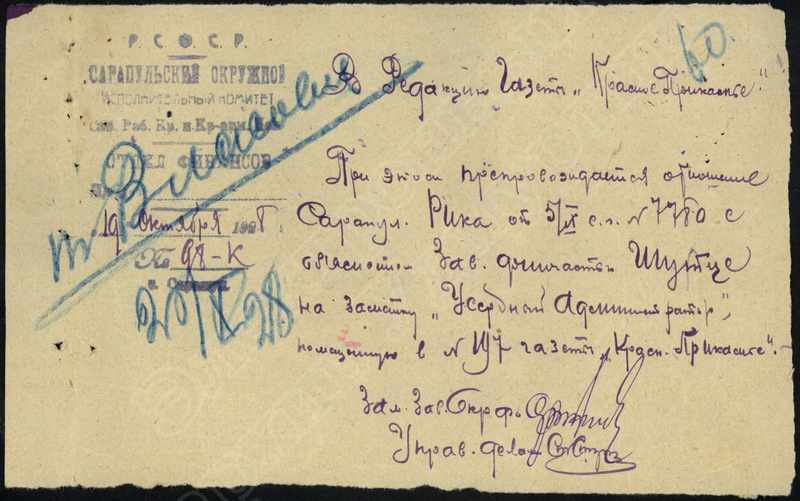 Р. С. Ф. С. Р.
САРАПУЛЬСКИЙ ОКРУЖНОЙ
ИСПОЛНИТЕЛЬНЫЙ КОМИТЕТ
Сов. Раб. Кр. и Кр-арм.
ОТДЕЛ ФИНАНСОВ
19 октября 1928 г.
№ 98-К
20/X-28
60
В Редакцию Газеты „Красное Прикамье".
При этом препровождается отношение
Сарапул. Рика от 5/IX с.г. № 7780 с
объяснением Зав. финчастью
на заметку „Усердный Администратор",
помещенную в № 197 газеты „Красн. Прикамье".-
Зам. Зав. Окрфо
Управ. делами